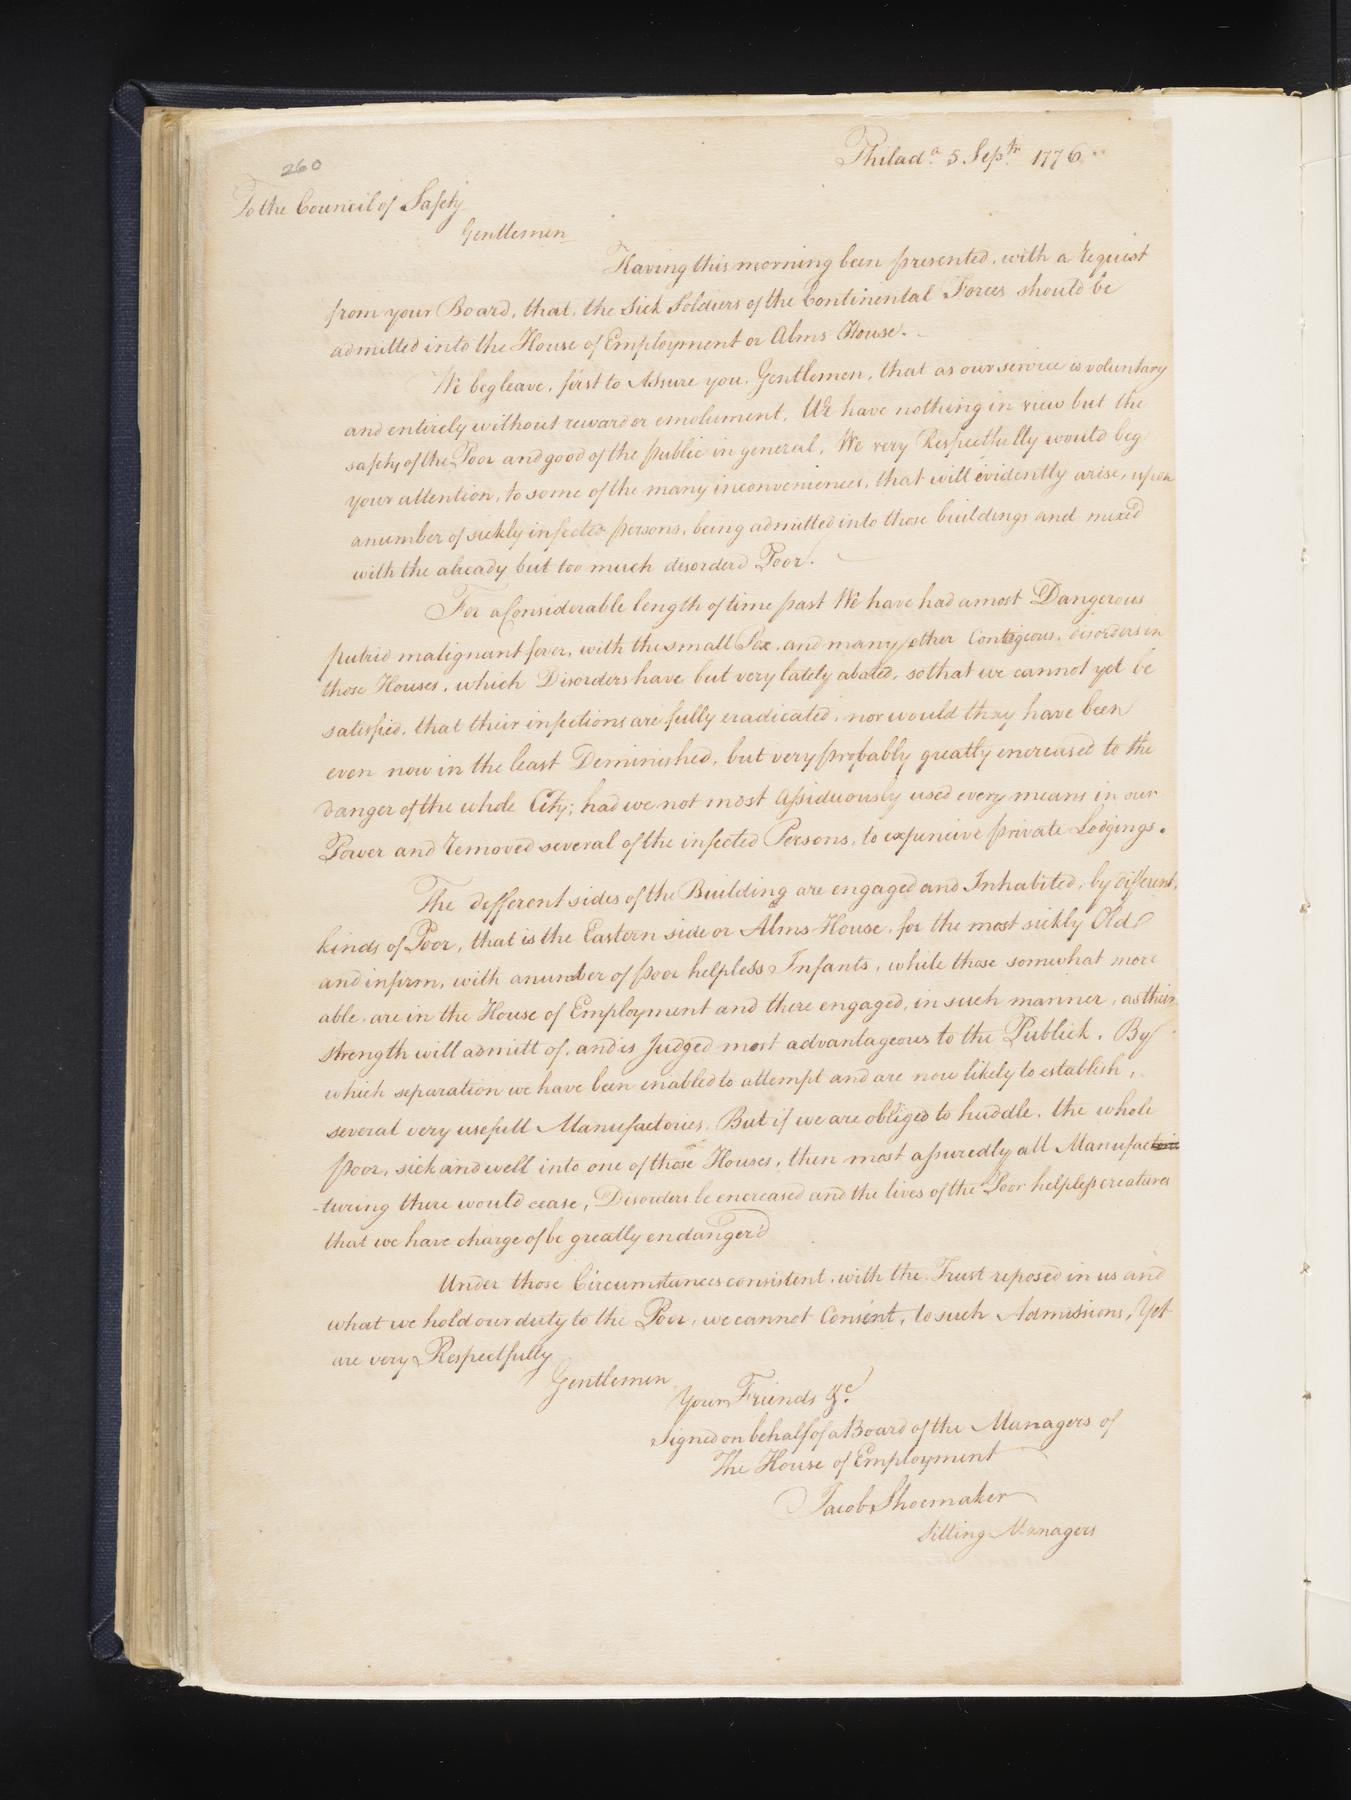 260
Philad.ᵃ 5 Sepᵗʳ 1776
To the Council of Safety
Gentlemen
Having this morning been presented, with a request
from your Board, that, the Sick Soldiers of the Continental Forces should be
admitted into the House of Employment or Alms House.
We beg leave, first to Assure you, Gentlemen, that as our service is voluntary
and entirely without reward or emolument, We have nothing in view but the
safety of the Poor and good of the public in general, We very Respectfully would beg
your attention, to some of the many inconveniences, that will evidently arise, upon
a number of sickly infected persons, being admitted into those buildings and mixed
with the already but too much disorderd Poor.
For a Considerable length of time past We have had a most Dangerous
putrid malignant fever, with the small Pox, and many other Contigeous, disorders in
those Houses, which Disorders have but very lately abated, so that we cannot yet be
satisfied, that their infections are fully eradicated, nor would they have been
even now in the least Deminished, but very probably greatly encreased to the
danger of the whole City; had we not most assiduously used every means in our
Power and removed several of the infected Persons, to expencive private Lodgings.
The different sides of the Building are engaged and Inhabited, by different,
kinds of Poor, that is the Eastern side or Alms House, for the most sickly Old
and infirm, with a number of poor helpless Infants, while those somewhat more
able, are in the House of Employment and there engaged, in such manner, as their
strength will admitt of, and is Judged most advantageous to the Publick. By
which separation we have been enabled to attempt and are now likely to establish,
several very usefull Manufactories. But if we are obliged to huddle, the whole
poor, sick and well into one of those Houses, then most assuredly all Manufac
-turing there would cease, Disorders be encreased and the lives of the Poor helpless creatures
that we have charge of be greatly endanger'd
Under those Circumstances consistent, with the Trust reposed in us and
what we hold our duty to the Poor, we cannot Consent, to such Admissions, Yet
are very Respectfully
Gentlemen
Your Friends &c.
Signed on behalf of a Board of the Managers of
The House of Employment
Jacob Shoemaker
Sitting Managers